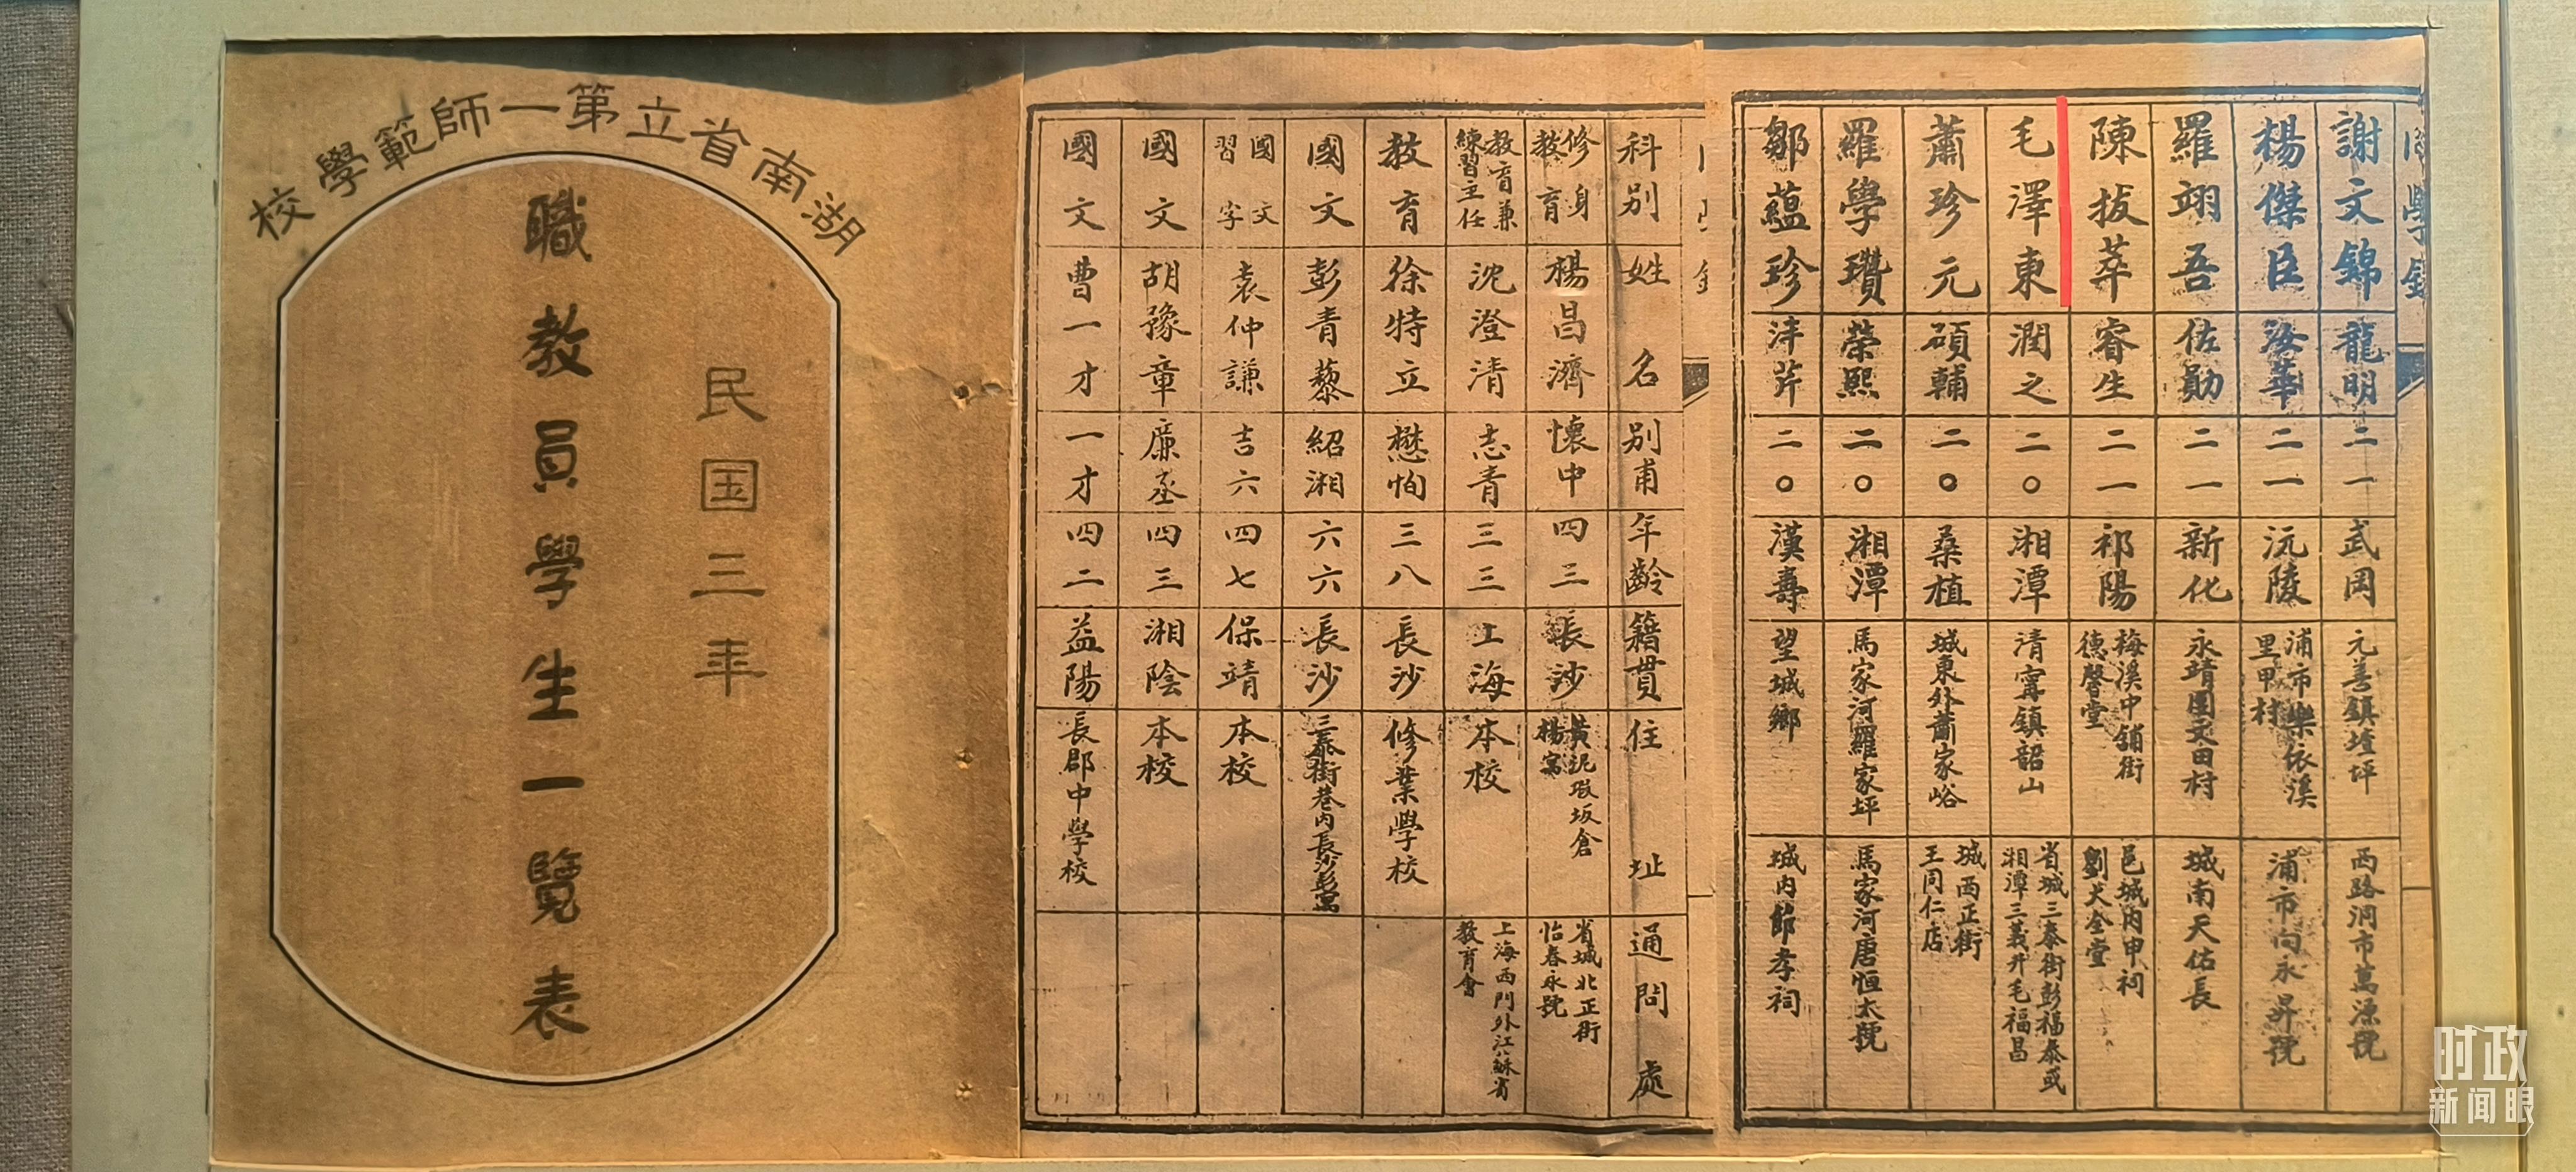 湖南省立第一師範學校
民国三年
職教員學生一覽表
科别 姓名 别甫 年齡 籍貫 住址 通問處
修身教育 楊昌濟 懷中 四三 長沙 黃泥塅坂倉楊寓 省城北正街怡春永號
教育兼練習主任 沈澄清 志青 三三 上海 本校 上海西門外江蘇省教育會
教育 徐特立 懋恂 三八 長沙 修業學校
國文 彭青藜 紹湘 六六 長沙 三泰街巷内長沙彭寓
國文習字 袁仲謙 吉六 四七 保靖 本校
國文 胡豫章 廉丞 四三 湘陰 本校
國文 曹一才 一才 四二 益陽 長郡中學校
同學錄
謝文錦 龍明 二一 武岡 元善鎮堎坪 西路洞市萬源號
楊傑臣 海華 二一 沅陵 浦市樂依溪里甲村 浦市向永昇號
羅翊吾 佐勛 二一 新化 永靖團文田村 城南天佑長
陳拔萃 睿生 二一 祁陽 梅溪中舖街德馨堂 邑城内申祠劉大全堂
毛澤東 潤之 二〇 湘潭 清甯鎮韶山 省城三泰街彭福泰或湘潭三義升毛福昌
蕭珍元 碩輔 二〇 桑植 城東外蕭家峪 城西正街王同仁店
羅學瓚 榮熙 二〇 湘潭 馬家河羅家坪 馬家河唐恒太號
鄒蘊珍 泮芹 二〇 漢壽 望城鄉 城内節孝祠
时政
新闻眼